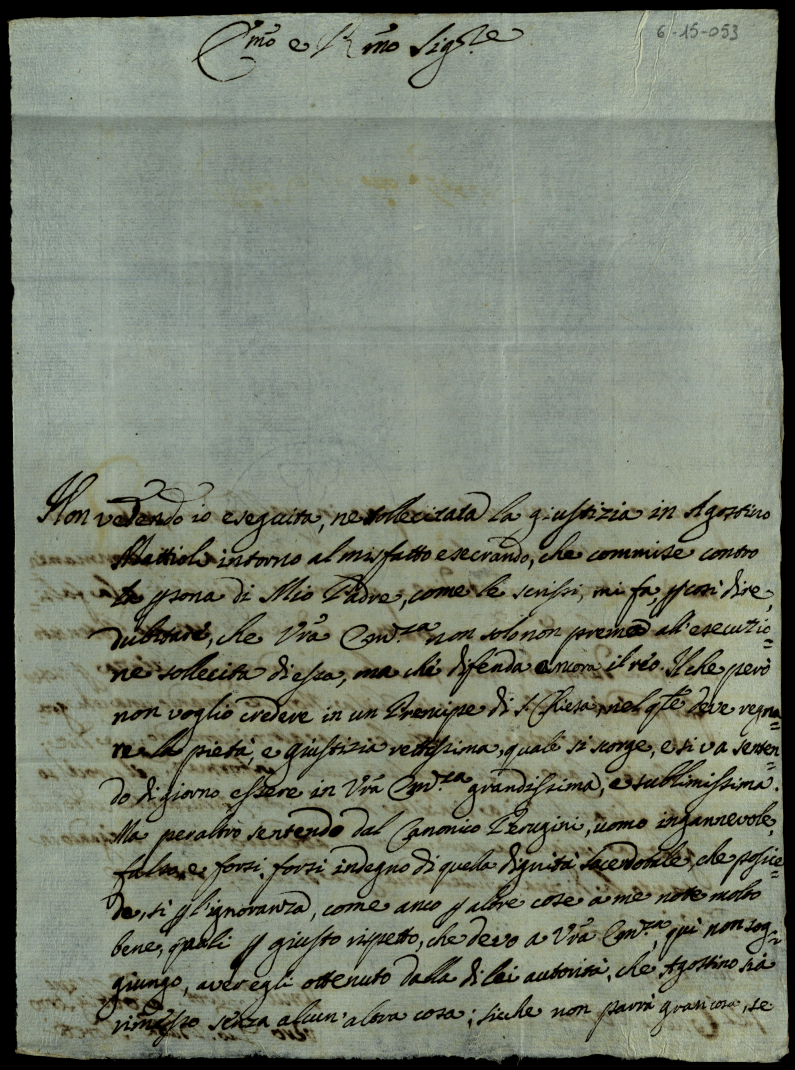 6-15-053
Emo e Rmo Sigre
Non vedendo io eseguita, ne sollecitata la giustizia in Agostino
Mattioli intorno al misfatto esecrando, che commise contro
la psona di Mio Padre, come le scrissi, mi fa, p così dire,
dubitare, che Vrã Em.za non solo non preme all'esecutio=
ne sollecita di essa, ma che difenda ancora il reo. Il che però
non voglio credere in un Prencipe di S. Chiesa, nel qle deve regna=
re la pietà, e giustizia rettissima, quale si scorge, e si va senten=
do di giorno essere in Vrã Em.za grandissima, e sublimissima.
Ma peraltro sentendo dal Canonico Perugini, uomo ingannevole,
falso, e forsi forsi indegno di quella dignità sacerdotale, che possie=
de, sì p l'ignoranza, come anco p altre cose a me note molto
bene, quali p giusto rispetto, che devo a Vrã Em.za, quì non sog=
giungo, aver egli ottenuto dalla di lei autorità, che Agostino sia
rimesso senza alcun'altra cosa; sicche non parrà gran cosa, se